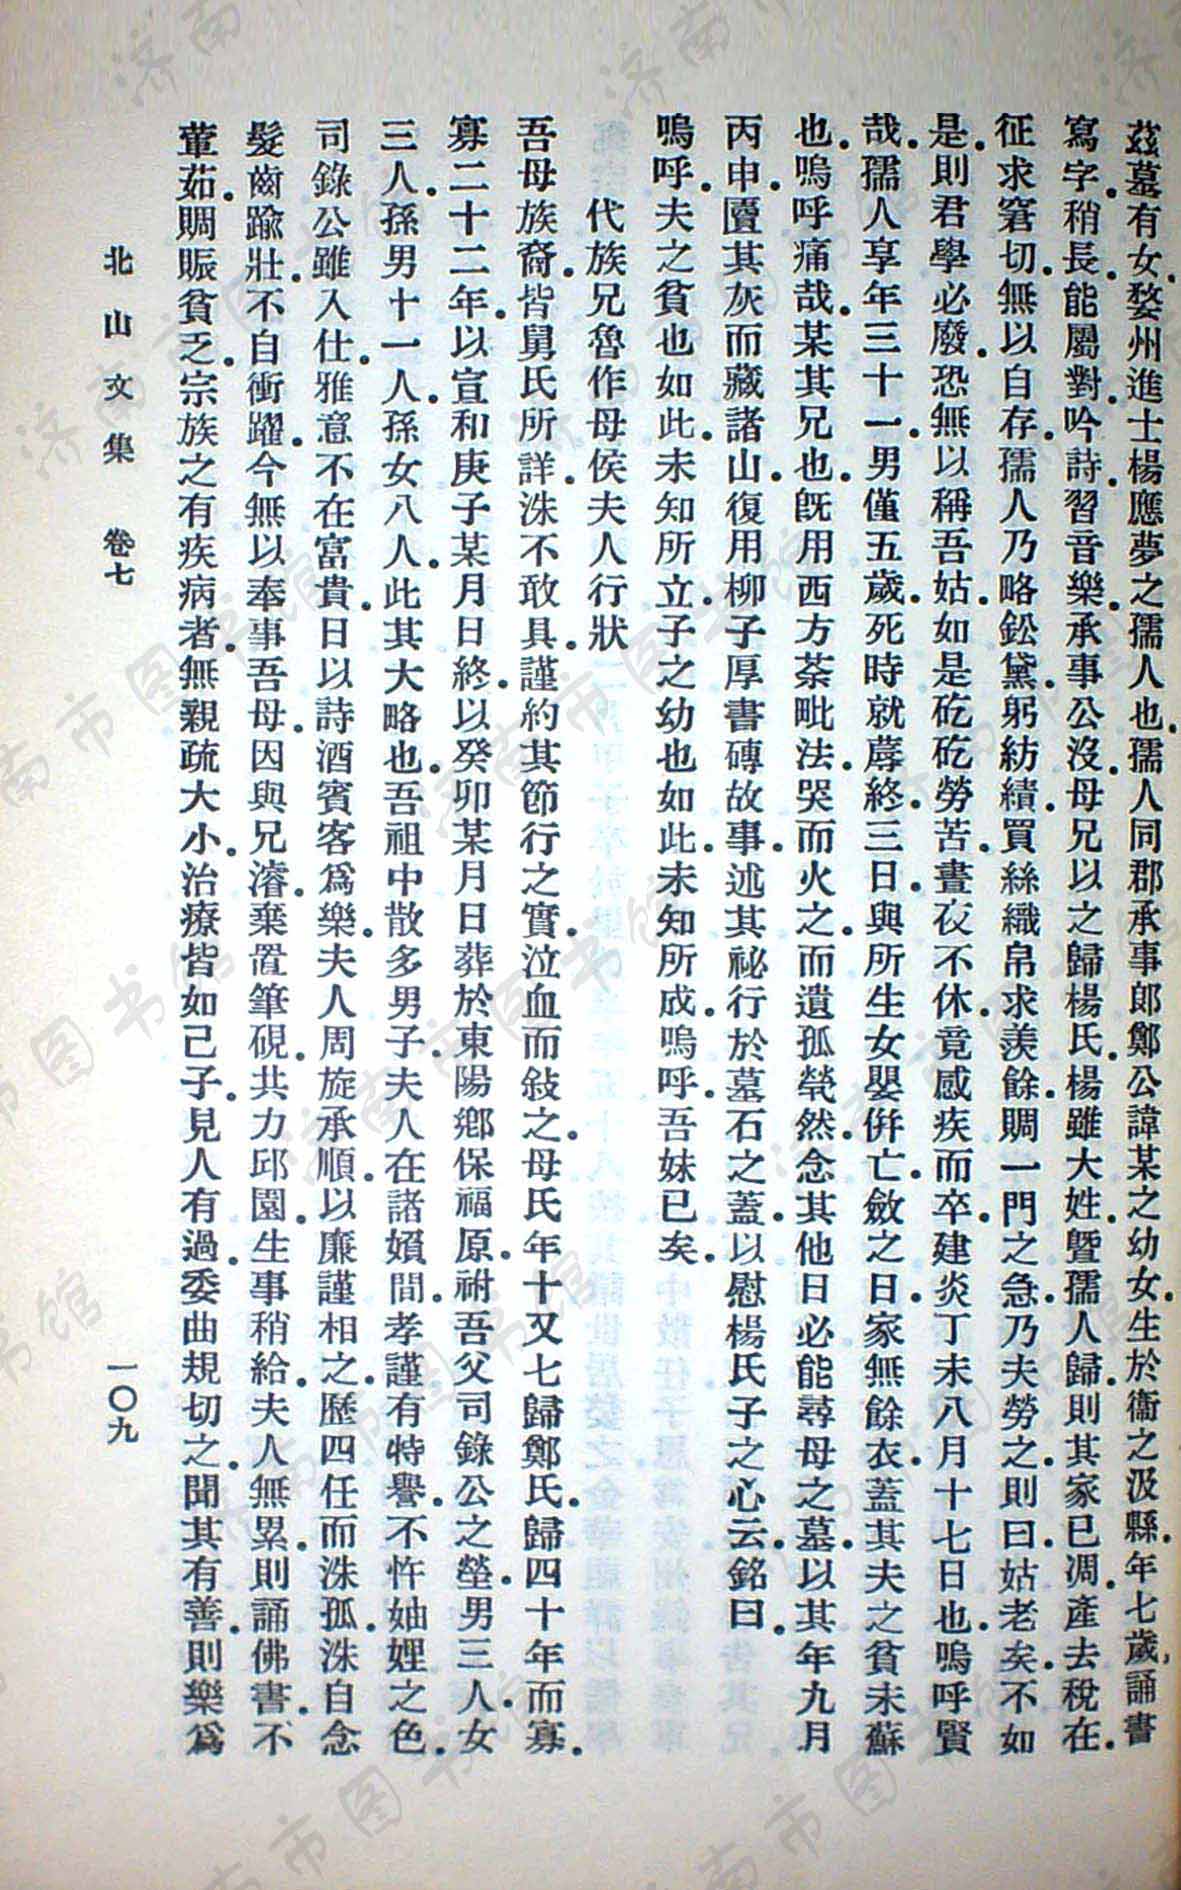 茲墓有女婺州進士楊應夢之孺人也孺人同郡承事郎鄭公諱某之幼女生於衞之汲縣年七歲誦書
寫字稍長能屬對吟詩習音樂承事公沒母兄以之歸楊氏楊雖大姓曁孺人歸則其家已凋產去稅在
征求窘切無以自存孺人乃略鉛黛躬紡績買絲織帛求羨餘賙一門之急乃夫勞之則曰姑老矣不如
是則君學必廢恐無以稱吾姑如是矻矻勞苦晝夜不休竟感疾而卒建炎丁未八月十七日也嗚呼賢
哉孺人享年三十一男僅五歲死時就蓐終三日與所生女嬰倂亡斂之日家無餘衣蓋其夫之貧未蘇
也嗚呼痛哉某其兄也旣用西方荼毗法哭而火之而遺孤煢然念其他日必能尋母之墓以其年九月
丙申賣其灰而藏諸山復用柳子厚書磚故事述其祕行於墓石之蓋以慰楊氏子之心云銘曰
嗚呼夫之貧也如此未知所立子之幼也如此未知所成嗚呼吾妹已矣
代族兄魯作母侯夫人行狀
吾母族裔皆舅氏所詳洙不敢具謹約其節行之實泣血而敍之母氏年十又七歸鄭氏歸四十年而寡
寡二十二年以宣和庚子某月日終以癸卯某月日葬於東陽鄉保福原祔吾父司錄公之塋男三人女
三人孫男十一人孫女八人此其大略也吾祖中散多男子夫人在諸嬪間孝謹有特譽不忤妯娌之色
司錄公雖入仕雅意不在富貴日以詩酒賓客爲樂夫人周旋承順以廉謹相之歷四任而洙孤洙自念
髮齒踰壯不自衝躍今無以奉事吾母因與兄濬棄置筆硯共力邱園生事稍給夫人無累則誦佛書不
葷茹賙賑貧乏宗族之有疾病者無親疏大小治療皆如己子見人有過委曲規切之聞其有善則樂爲
北山文集 卷七 一〇九
济南市图书馆